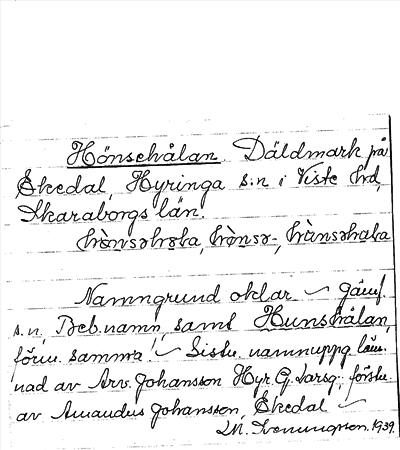 Hönsehålan. Däldmark på
Ekedal, Hyringa s:n i Viste hrd,
Skaraborgs län.
Namngrund oklar. – Jämf.
s.n. Beb.namn, samt Hunshålan,
förm. samma! – Sista namnuppg. läm-
nad av Arv. Johansson Hyr. G. Larsg., första
av Amandus Johansson, Ekedal –
1939.